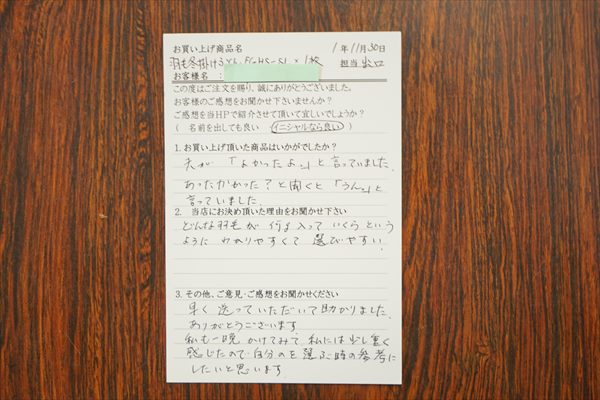 お買い上げ商品名 1年11月30日
羽毛冬掛けふとん FGHS-SL×1枚 担当 出口
お客様名:
この度はご注文を賜り、誠にありがとうございました。
お客様のご感想をお聞かせ下さいませんか?
ご感想を当HPで紹介させて頂いて宜しいでしょうか?
( 名前を出しても良い イニシャルなら良い )
1. お買い上げ頂いた商品はいかがでしたか?
夫が「よかったよ。」と言っていました。
あったかかった?と聞くと「うん。」と
言っていました。
2. 当店にお決め頂いた理由をお聞かせ下さい
どんな羽毛が何g入っていくらという
ようにわかりやすくて選びやすい。
3. その他、ご意見・ご感想をお聞かせください
早く送っていただいて助かりました。
ありがとうございます
私も一晩かけてみて私には少し重く
感じたので自分のを選ぶ時の参考に
したいと思います